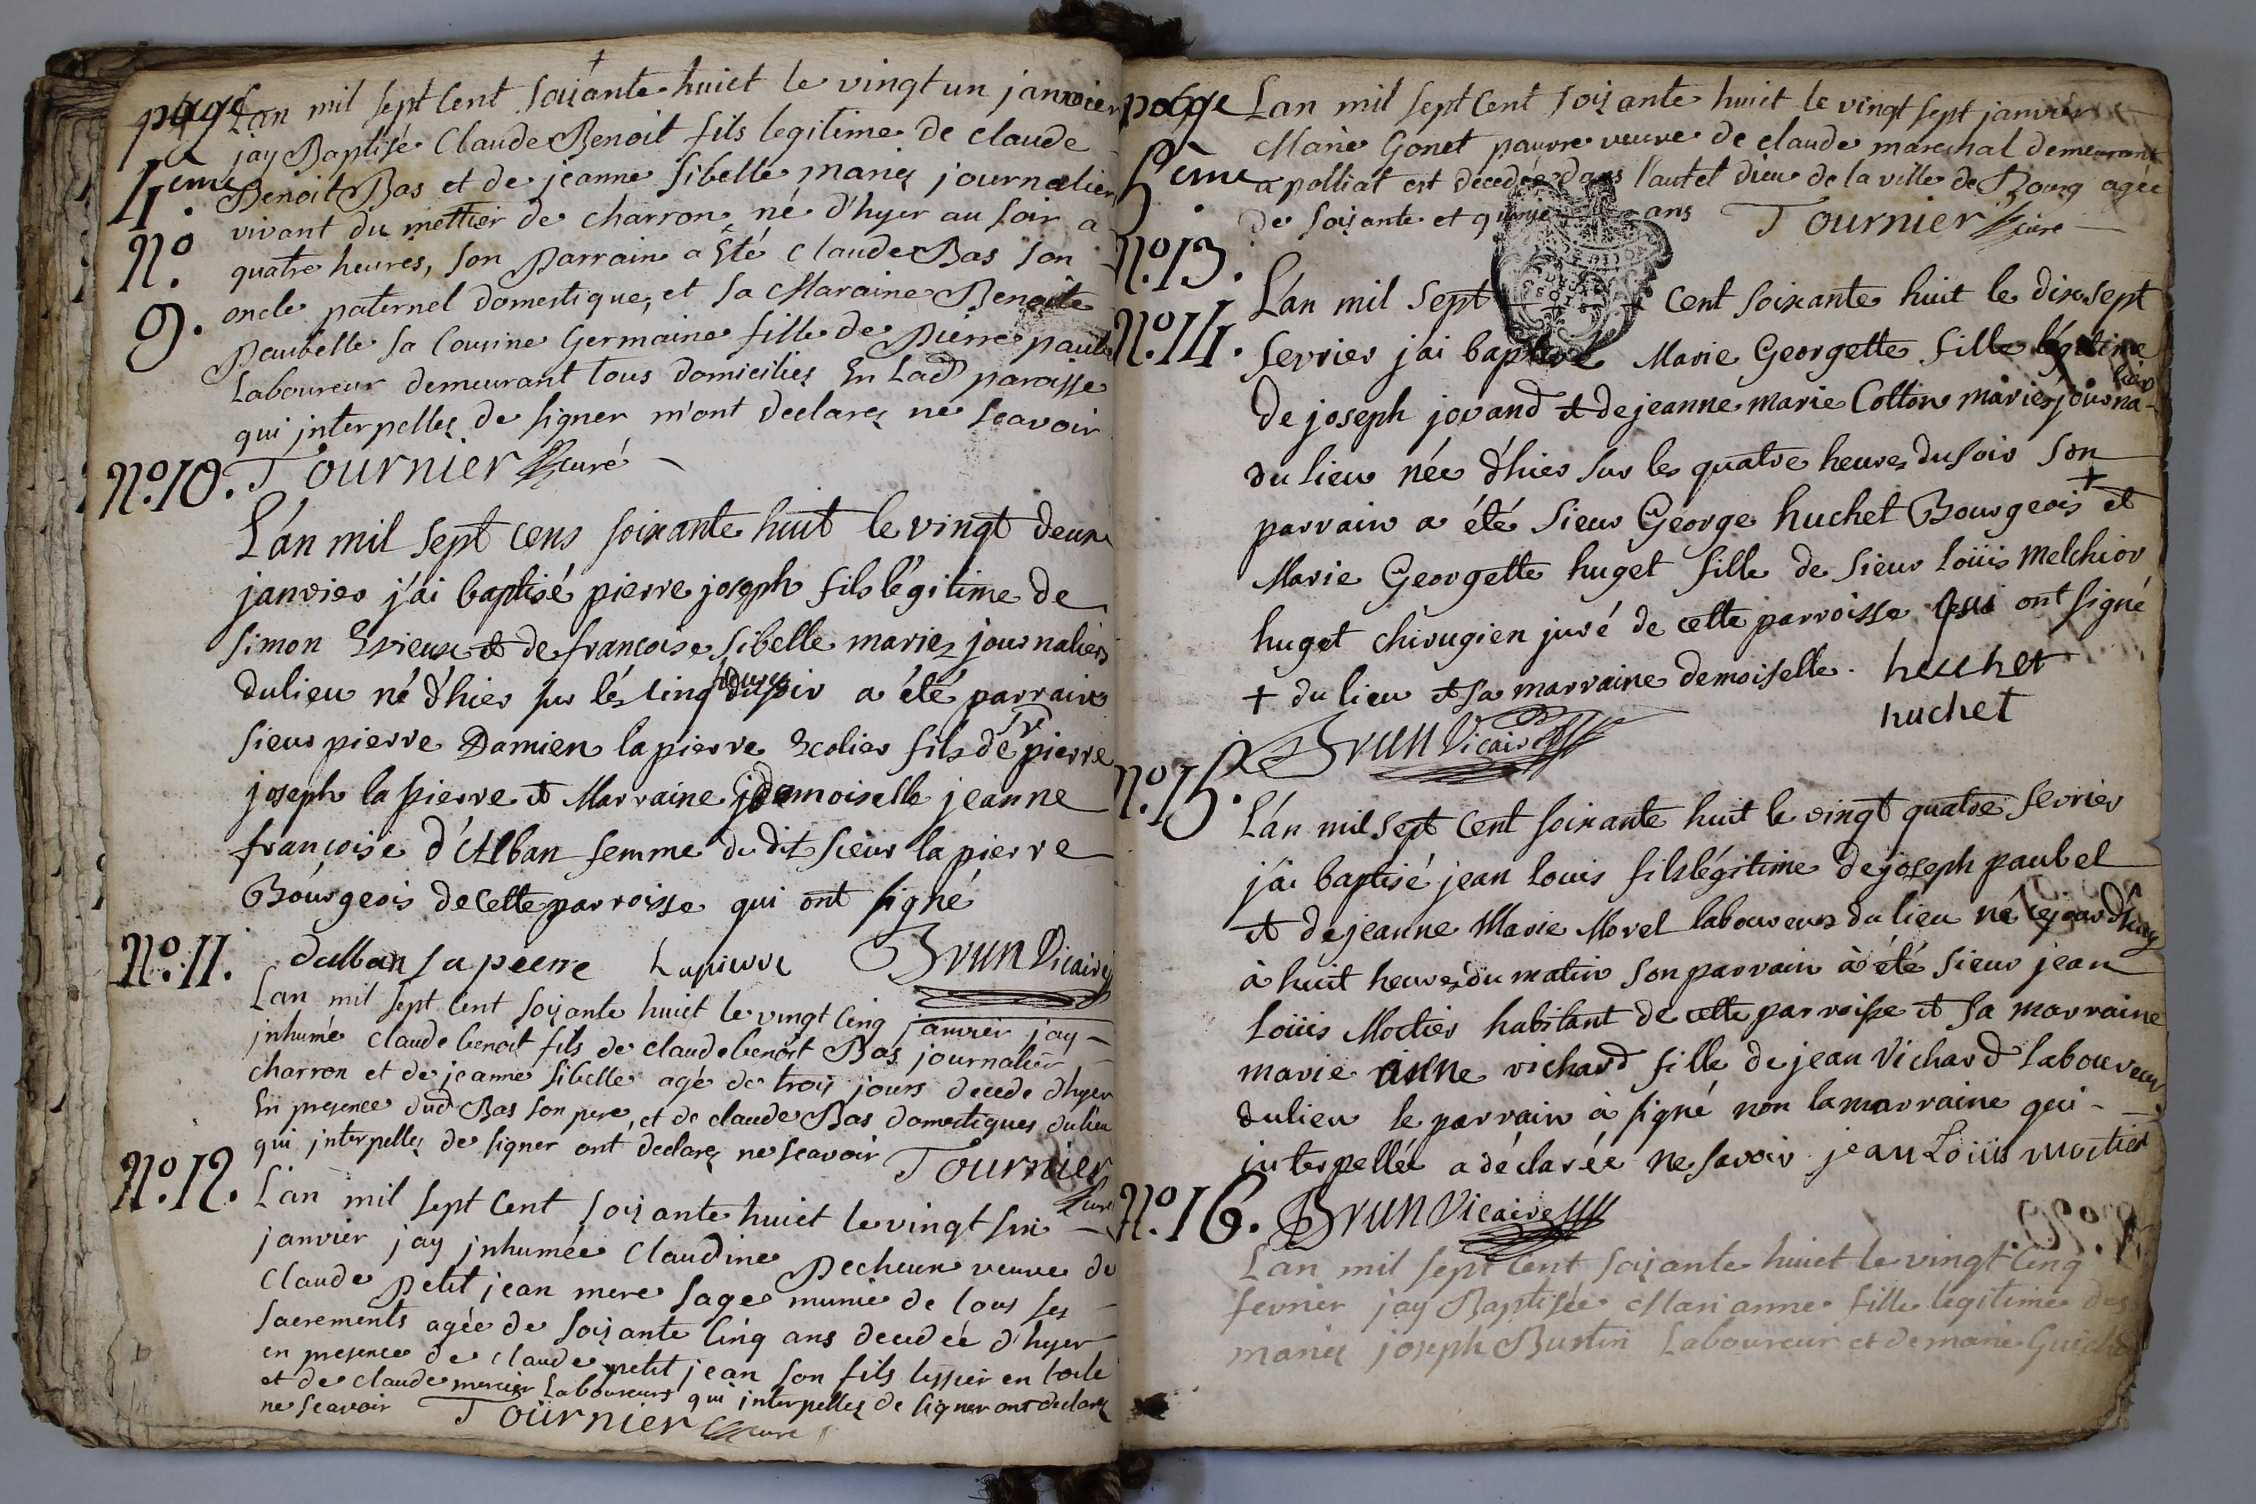 page
4eme
Lan mil sept cent soixante huict le vingt un janvier
jay Baptisé Claude Benoit fils legitime de claude
Benoit Bas et de jeanne sibelle mariez journalier
vivant du mettier de charron né d'hyer au soir a
N°
9.
quatre heures, son Parrain a Eté Claude Bas son
oncle paternel domestique, et sa Maraine Benoite
Paubelle sa Cousine Germaine fille de Pierre paubel
Laboureur demeurant tous domiciliez En Lad paroisse
qui jnterpellez de signer m'ont declarez ne scavoir
Tournier curé
N°.10.
L'an mil sept cens soixante huit le vingt deux
janvier j'ai baptisé pierre joseph fils légitime de
Simon Evieux et de francoise sibelle mariez journaliers
du lieu né d'hier sur lés cinq heures du soir a été parrain
sieur pierre Damien la pierre Ecolier fils de sr pierre
joseph la pierre et Marraine demoiselle jeanne
françoise d'Alban femme du dit sieur la pierre
Bourgeois de cette parroisse qui ont signé
dalban la pierre Lapierre Brun Vicaire
N°.11.
Lan mil sept cent soixante huict le vingt cinq janvier jay
jnhumé claude benoit fils de claude benoit Bas journalier
charron et de jeanne sibelle agé de trois jours decede d'hyer
En presence dud Bas son pere, et de claude Bas domestiques du lieu
qui jnterpellez de signer ont declarez ne scavoir Tournier
curé
N°.12.
Lan mil sept cent soixante huict le vingt six
janvier jay jnhumée Claudine Pecheux veuve de
Claude Petit jean mere sage munie de tous ses
sacrements agée de soixante cinq ans decedée d'hyer
en presence de claude petit jean son fils tissier en toile
et de claude mercier Laboureurs qui jnterpellez de signer ont declarez
ne scavoir Tournier curé
page
5eme
Lan mil sept cent soixante huict le vingt sept janvier
Marie Gonet pauvre veuve de claude marechal demeurant
a polliat est decedée dans l'autel dieu de la ville de Bourg agée
de soixante et quinze ans Tournier curé
N°.13.
N°.14.
L'an mil sept cent soixante huit le dix sept
fevrier j'ai baptisé Marie Georgette fille légitime
de joseph jovand et de jeanne marie Cotton mariés journaliers
du lieu née d'hier sur les quatre heures du soir son
parrain a été sieur George huchet Bourgeois + et
Marie Georgette huget fille de sieur Loüis Melchior
huget chirugien juré de cette parroisse qui ont signé
+ du lieu et sa marraine demoiselle. huchet
huchet
Brun Vicaire
N°.15.
L'an mil sept cent soixante huit le vingt quatre fevrier
j'ai baptisé jean Louis fils légitime de joseph paubel
et de jeanne Marie Morel laboureurs du lieu né cejourd'huy
à huit heures du matin son parrain à été sieur jean
Loüis Moctier habitant de cette parroisse et sa marraine
marie anne vichard fille de jean vichard laboureur
du lieu le parrain à signé non la marraine qui
interpellée a déclarée ne savoir jean Loüis moctier
N°.16. Brun Vicaire
Lan mil sept cent soixante huict le vingt cinq
fevrier jay Baptisée Marianne fille legitime des
mariez joseph Burtin Laboureur et de marie